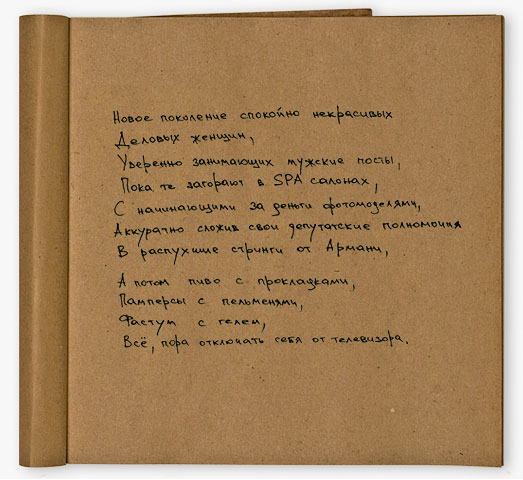 Новое поколение спокойно некрасивых
Деловых женщин,
Уверенно занимающих мужские посты,
Пока те загорают в SPA салонах,
С начинающими за деньги фотомоделями,
Аккуратно сложив свои депутатские полномочия
В распухшие стринги от Армани,
А потом пиво с прокладками,
Памперсы с пельменями,
Фастум с гелем,
Всё, пора отключать себя от телевизора.